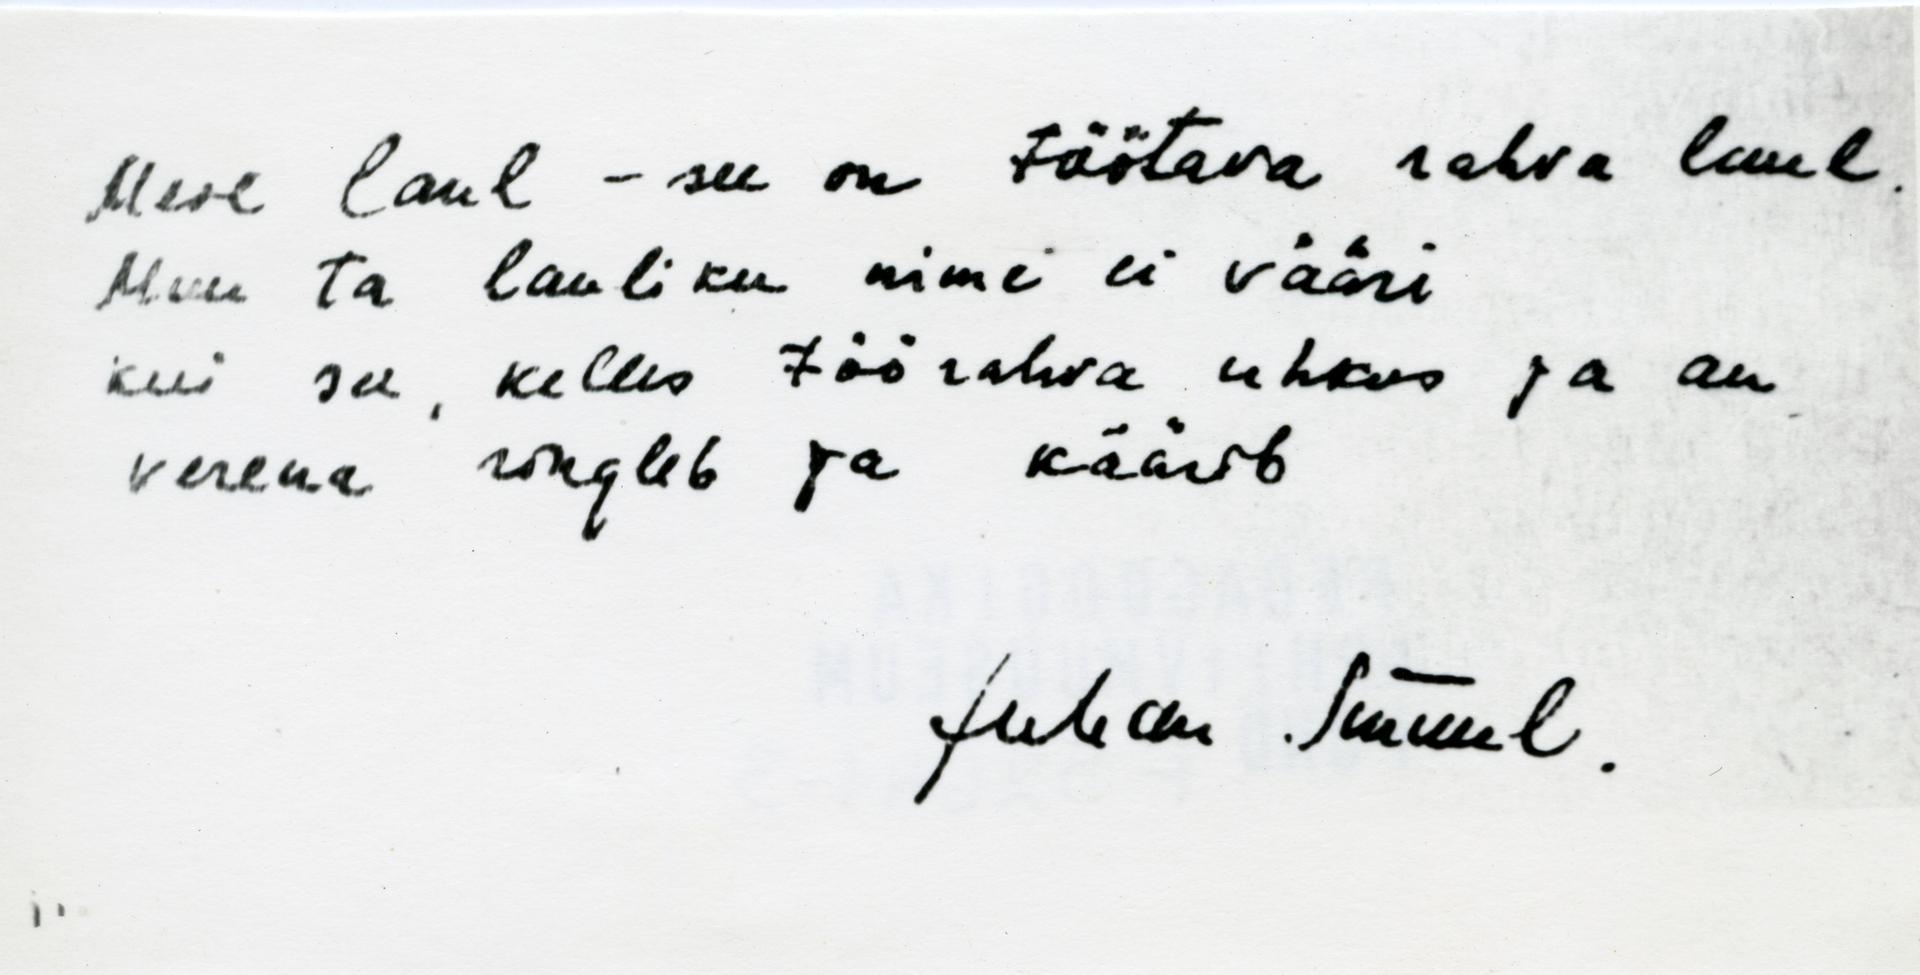 Meie laul – see on töötava rahva laul.
Muu ta lauliku nime ei vääri
kui see, kelles töörahva uhkus ja au
verena ringleb ja käärib
Juhan Smuul.